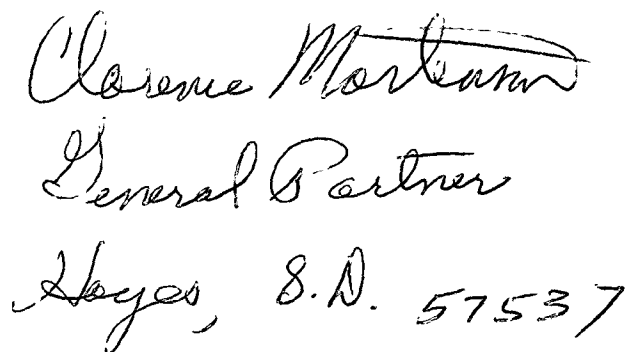 Clarence Mortenson
General Partner
Hayes, S.D. 57537